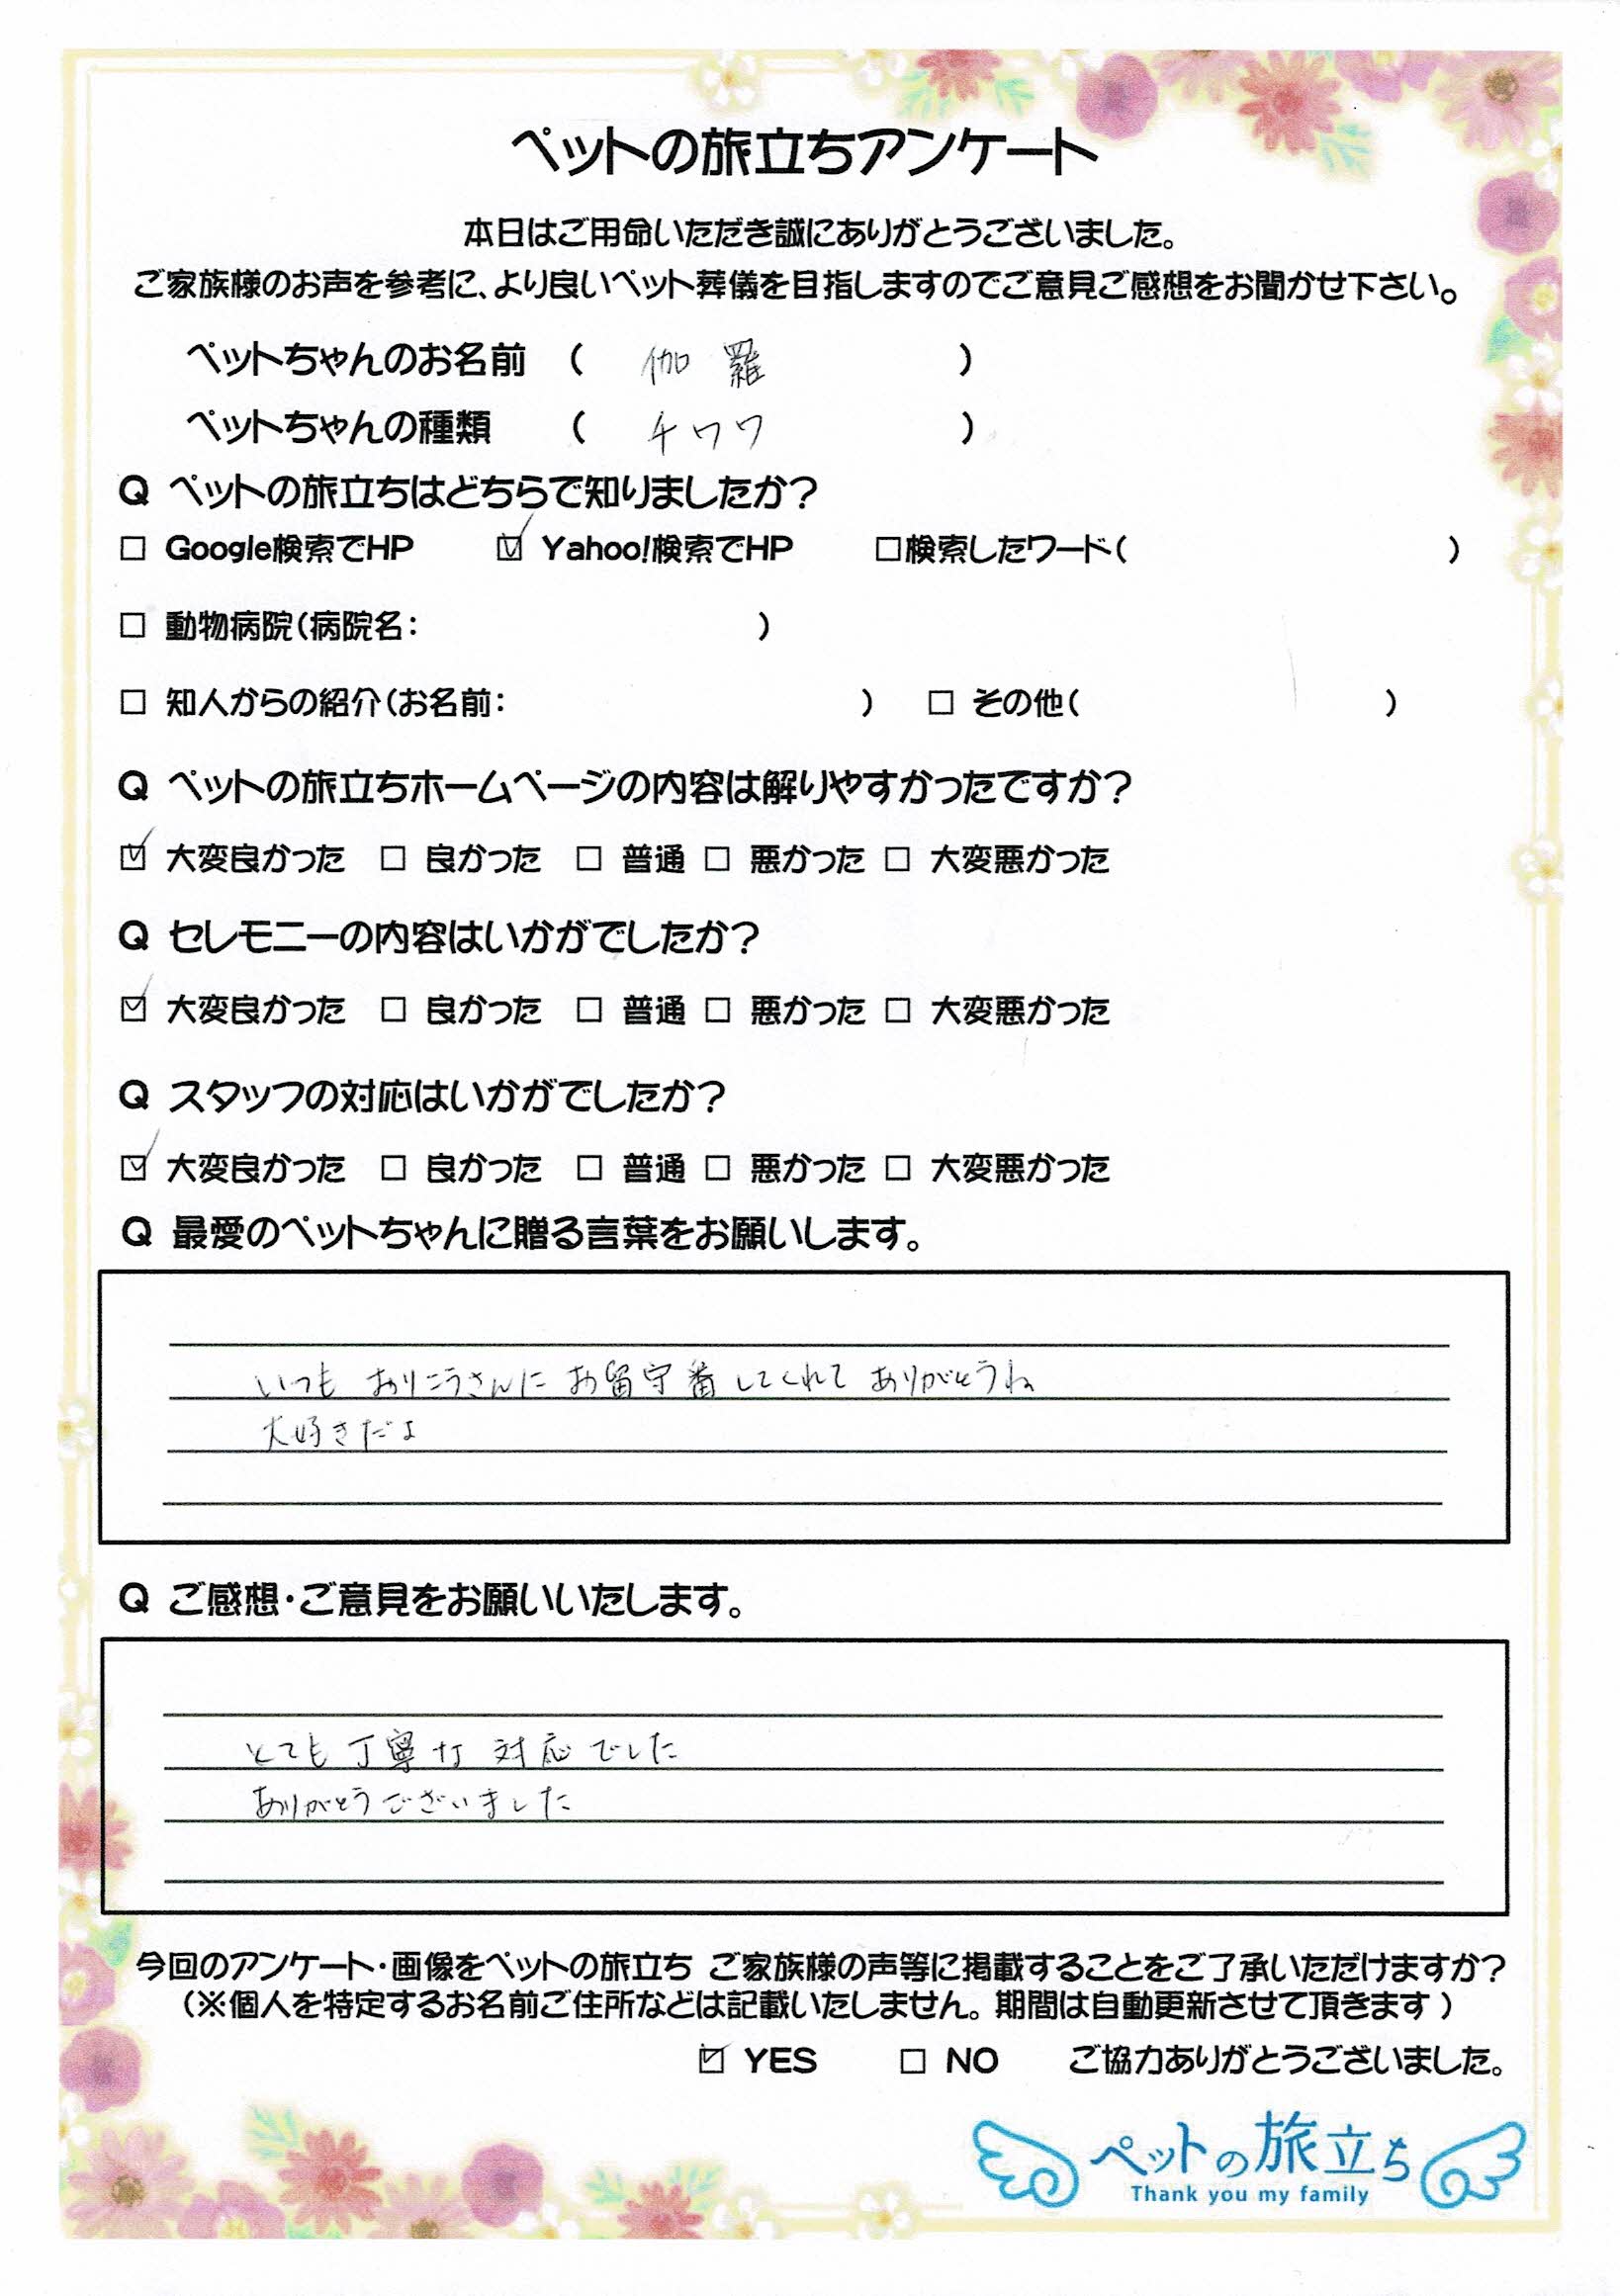 ペットの旅立ちアンケート
本日はご用命いただき誠にありがとうございました。
ご家族様のお声を参考に、より良いペット葬儀を目指しますのでご意見ご感想をお聞かせ下さい。
ペットちゃんのお名前 ( 伽羅 )
ペットちゃんの種類 ( チワワ )
Q ペットの旅立ちはどちらで知りましたか?
□ Google検索でHP ☑ Yahoo!検索でHP □検索したワード( )
□ 動物病院(病院名: )
□ 知人からの紹介(お名前: ) □ その他( )
Q ペットの旅立ちホームページの内容は解りやすかったですか?
☑ 大変良かった □ 良かった □ 普通 □ 悪かった □ 大変悪かった
Q セレモニーの内容はいかがでしたか?
☑ 大変良かった □ 良かった □ 普通 □ 悪かった □ 大変悪かった
Q スタッフの対応はいかがでしたか?
☑ 大変良かった □ 良かった □ 普通 □ 悪かった □ 大変悪かった
Q 最愛のペットちゃんに贈る言葉をお願いします。
いつも おりこうさんに お留守番してくれて ありがとうね
大好きだよ
Q ご感想・ご意見をお願いいたします。
とても 丁寧な 対応でした
ありがとうございました
今回のアンケート・画像をペットの旅立ち ご家族様の声等に掲載することをご了承いただけますか?
(※個人を特定するお名前ご住所などは記載いたしません。期間は自動更新させて頂きます)
☑ YES □ NO ご協力ありがとうございました。
ペットの旅立ち
Thank you my family